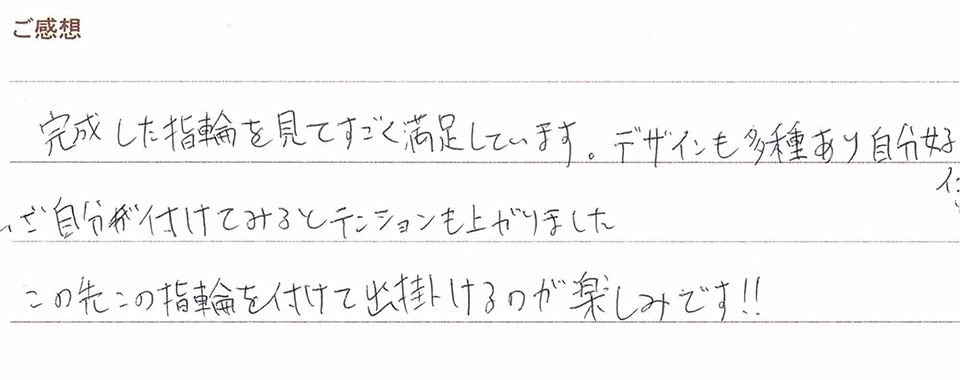 ご感想
完成した指輪を見てすごく満足しています。デザインも多種あり自分好
いざ自分が付けてみるとテンションも上がりました
この先この指輪を付けて出掛けるのが楽しみです!!